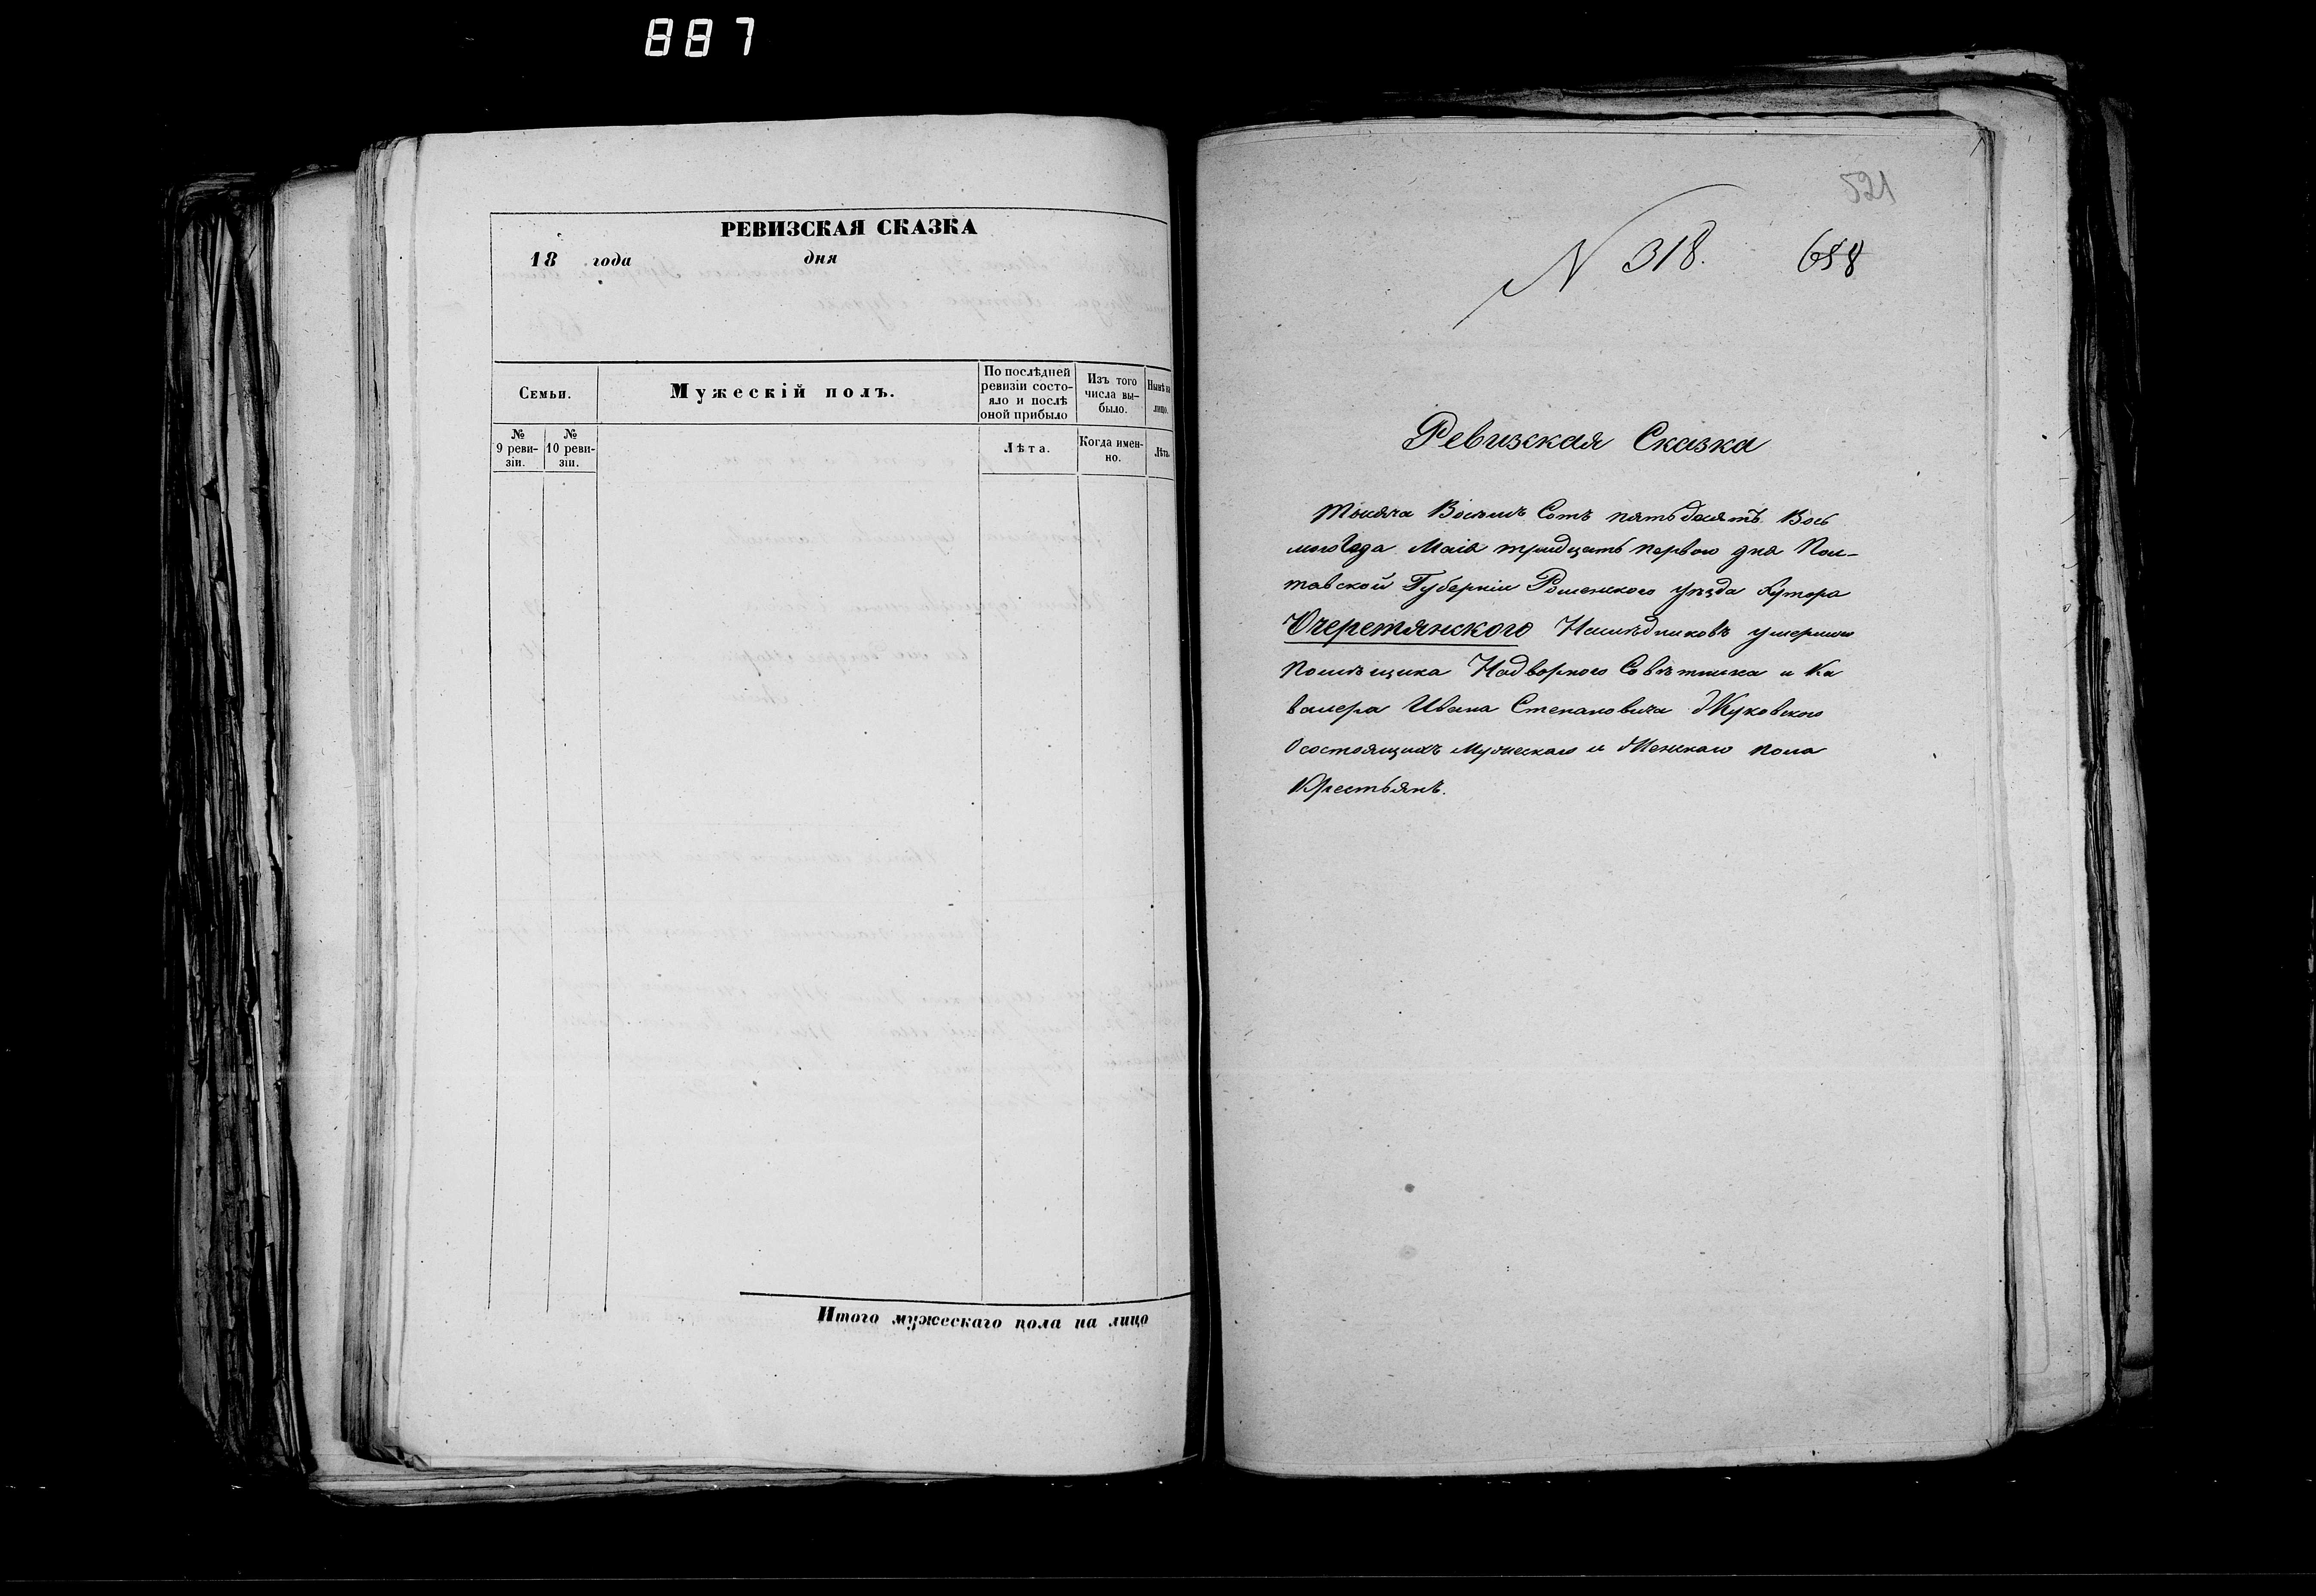 887
РЕВИЗСКАЯ СКАЗКА
18 года дня
Семьи.
Мужескій полъ.
По послѣдней ревизіи состо-
яло и послѣ
оной прибыло
Изъ того
числа вы-
было.
Нынѣ на
лицо.
№
9 реви-
зіи.
№
10 реви-
зіи.
Лѣта.
Когда имен-
но.
Лѣта.
Итого мужескаго пола на лицо
521
N 318. 658
Ревизская Сказка
Тысяча Восемь Сотъ пятьдесятъ Вось
мого Года Маія тридцать первого дня Пол-
тавской Губерніи Роменского уѣзда хутора
Очеретянского Наслѣдниковъ умершого
Помѣщика Надворного Совѣтника и Ка
валера Ивана Степановича Жуковского
О состоящихъ Мужескаго и Женскаго пола
Крестьянъ.